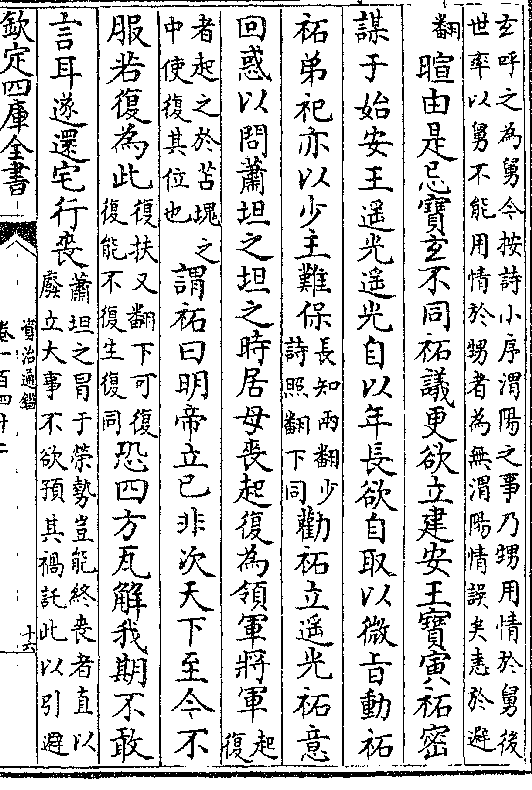 玄呼之為舅今按詩小序渭陽之事乃甥用情於舅後
世率以舅不能用情於甥者為無渭陽情誤矣恚於避
翻暄由是忌寶玄不同祏議更欲立建安王寶寅祏密
謀于始安王遥光遥光自以年長欲自取以微旨動祏
祏弟祀亦以少主難保長知兩翻少詩照翻下同勸祏立遥光祏意
回惑以問蕭坦之坦之時居母喪起復為領軍將軍起復
者起之於苫塊之中使復其位也謂祏曰明帝立已非次天下至今不
服若復為此復扶又翻下可復復能不復生復同恐四方瓦解我期不敢
言耳遂還宅行喪蕭坦之冒于榮勢豈能終喪者直以廢立大事不欲預其禍託此以引避
欽定四庫全書
資治通鑑
卷一百四十二
十六